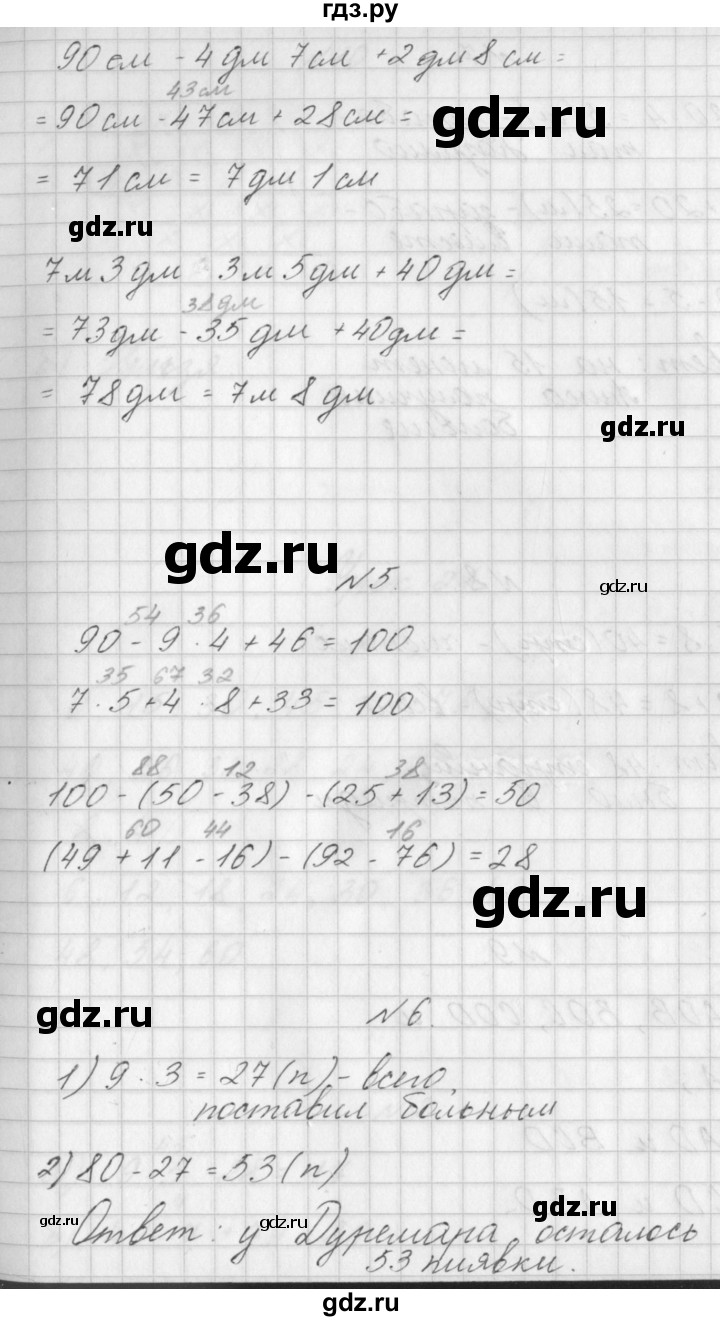 гдз.ру
90 см - 4 дм 7 см + 2 дм 8 см =
43 см
= 90 см - 47 см + 28 см =
gdz.ru
= 71 см = 7 дм 1 см
gdz.ru
7 м 3 дм - 3 м 5 дм + 40 дм =
38 дм
= 73 дм - 35 дм + 40 дм =
= 78 дм = 7 м 8 дм
gdz.ru
gdz.ru
N 5.
gdz.ru
54 36
90 - 9 · 4 + 46 = 100
35 67 32
7 · 5 + 4 · 8 + 33 = 100
88 12 38
100 - (50 - 38) - (25 + 13) = 50
60 44 16
(49 + 11 - 16) - (92 - 76) = 28
gdz.ru
gdz.ru
N 6.
1) 9 · 3 = 27 (п) - всего
поставил больным
2) 80 - 27 = 53 (п)
gdz.ru
gdz.ru
gdz.ru
Ответ: у Дуремана осталось
53 пиявки.
gdz.ru